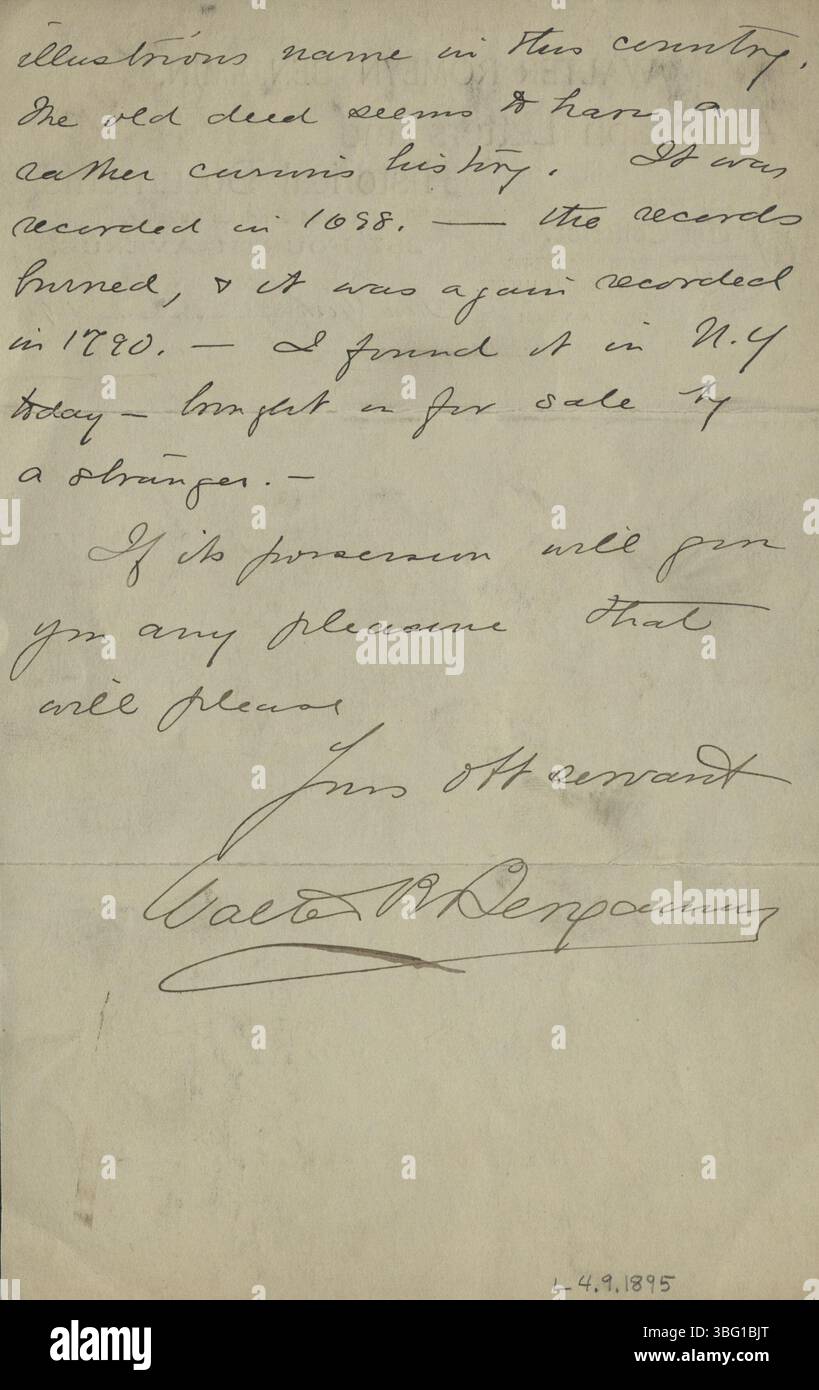 illustrious name in this country.
The old deed seems to have a
rather curious history. It was
recorded in 1698. — the records
burned, & it was again recorded
in 1790. — I found it in N.Y
today — brought in for sale by
a stranger. —
If its possession will give
you any pleasure that
will please
Yours obt servant
Walter R Benjamin
L 4.9.1895
alamy
Image ID: 3BG1BJT
www.alamy.com